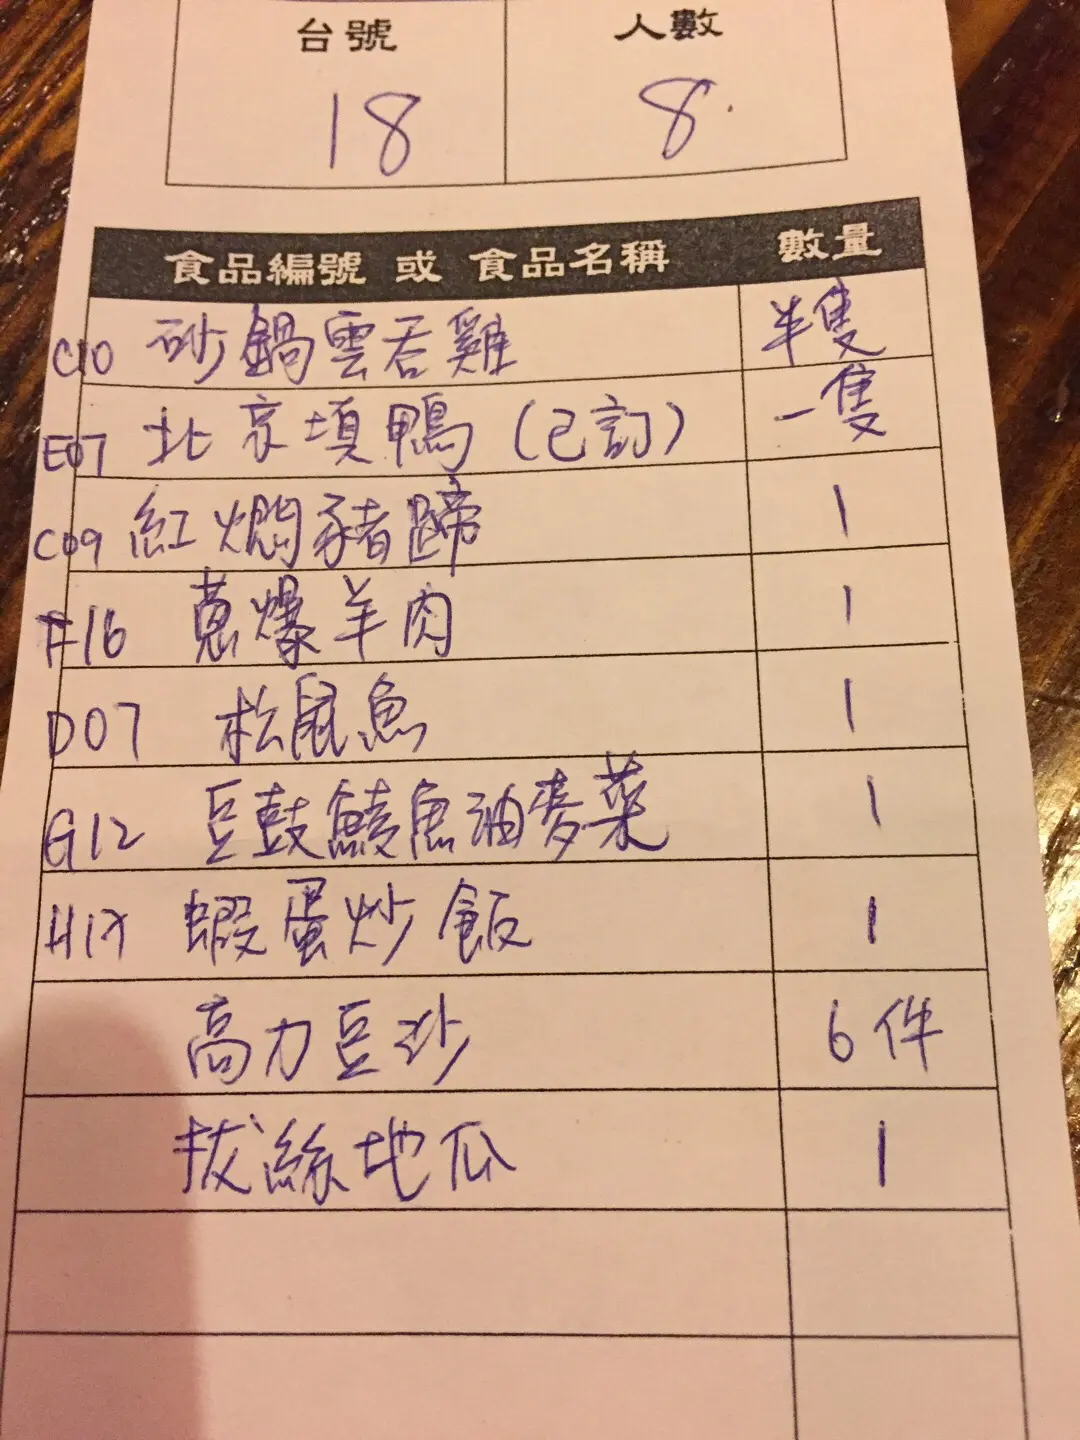 台號 人數
18 8
食品編號 或 食品名稱 數量
C10 砂鍋雲吞雞 半隻
E07 北京填鴨（已訂） 一隻
C09 紅燜豬蹄 1
F16 蔥爆羊肉 1
D07 松鼠魚 1
G12 豆鼓鯪魚油麥菜 1
H17 蝦蛋炒飯 1
高力豆沙 6件
拔絲地瓜 1